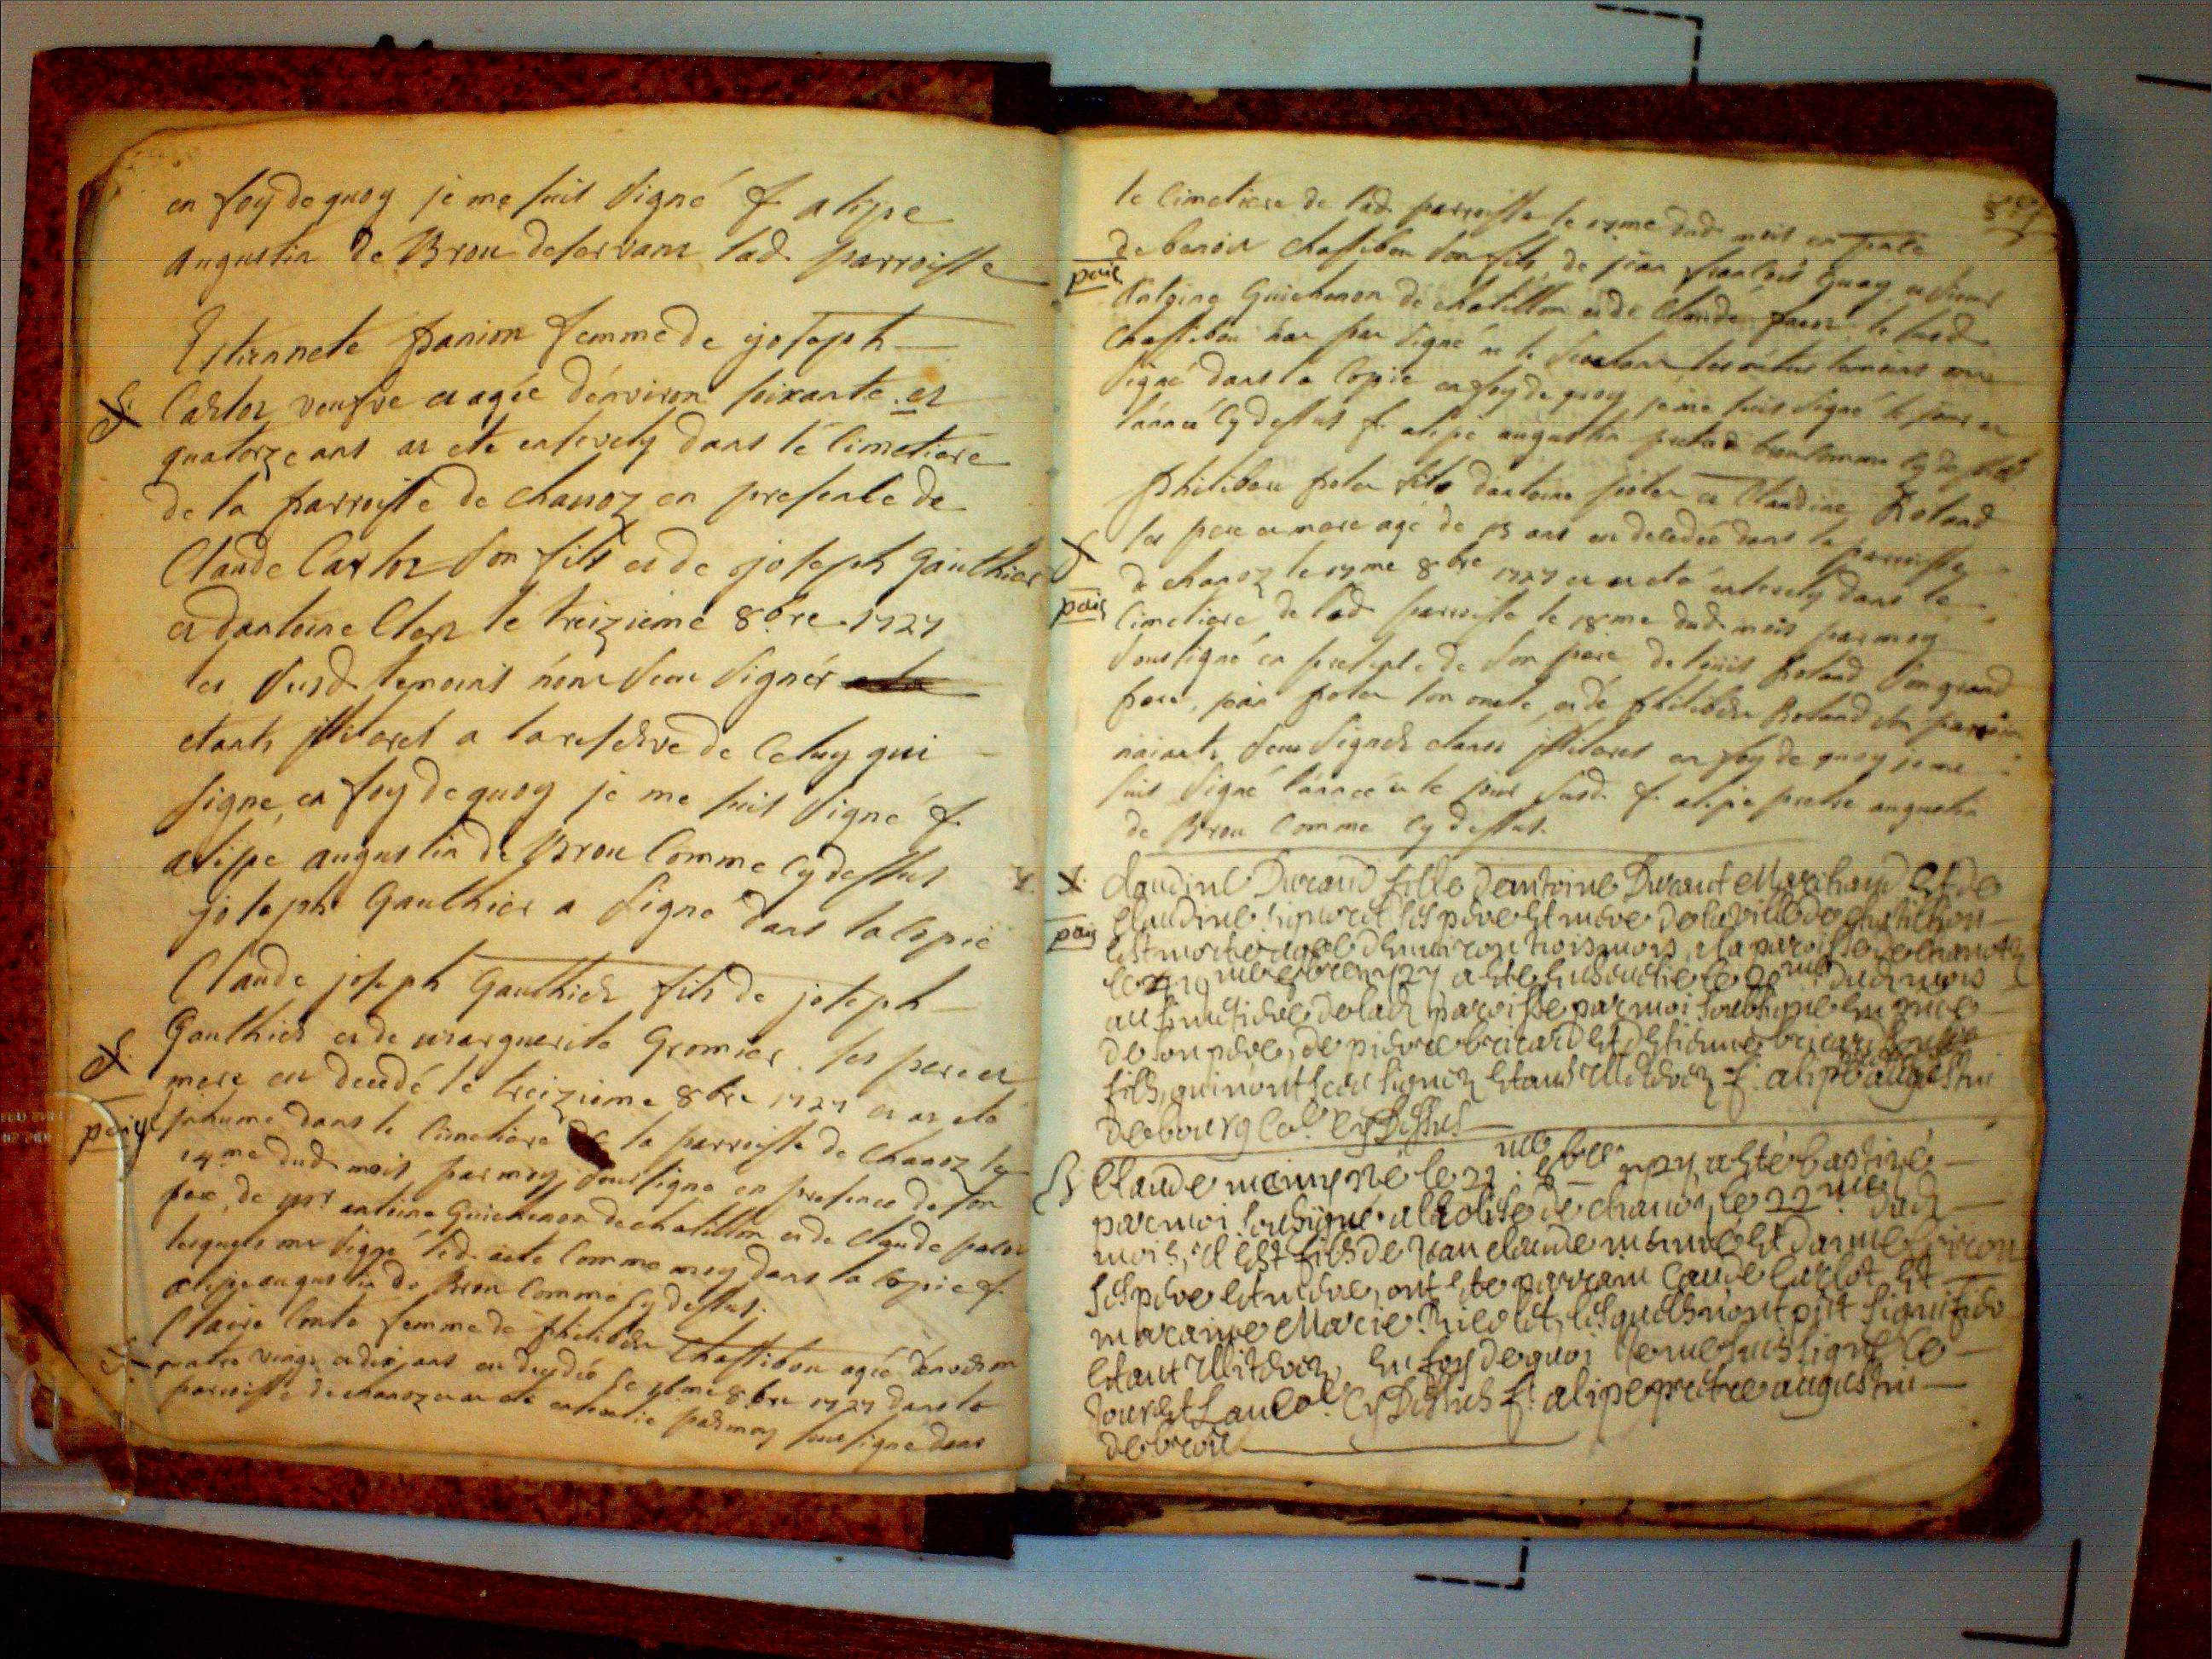 en foy de quoy je me suis signé f. alipe
augustin de Brou deservant lad. parroisse
Estiennete panion femme de joseph
Carloz veufve et agée d'environ soixante et
quatorze ans at eté ensevely dans le cimetiere
de la parroisse de chanoz en presence de
Claude Carloz son fils et de joseph Gauthier
et d'antoine Clerz le treizieme 8bre 1727
les susd. temoins n'ont sceu signér
etants jllitérés a la reserve de celuy qui
signe, en foy de quoy je me suis signé f.
alipe augustin de Brou comme cy dessus
joseph Gauthier a signé dans la copie
Claude joseph Gauthier fils de joseph
Gauthier et de marguerite Gromier ses pere et
mere est decedé le treizieme 8bre 1727 et at eté
paiye
jnhumé dans le cimetiere de la parroisse de Chanoz le
14me dud. mois par moy soussigné en presence de son
pere, de mr antoine Guichenon de chatillon et de claude
lesquels ont signé led. acte comme moy dans la copie f.
alipe augustin de Brou comme cy dessus.
Claire Conte femme de philibert Chassibou agée d'environ
quatre vingt et dix ans est decedée le 16me 8bre 1727 dans la
parroisse de chanoz et at eté ensevelie par moy soussigné dans
le cimetiere de lad. parroisse le 17me dud. mois en
de benoit chassibou son fils, de jean francois et sieur
paié
antoine Guichenon de chatillon et de claude le susd.
Chassibou n'at pas signé ne le les autres temoins ont
signé dans la copie en foy de quoy je me suis signé le jour et
l'année cy dessus f. alipe augustin de brou comme cy dessus
philibert poter fils d'antoine poter et Claudine Roland
ses pere et mere agé de 13 ans est decedée dans la parroisse
de chanoz le 17me 8bre 1727 et at eté ensevely dans le
paié
cimetiere de lad. parroisse le 18me dud. mois par moy
soussigné en presence de son pere de loüis Roland son grand
pere, jean poter son oncle, et de philibert Roland son parrain
n'aiants sceu signér etants jllitérés en foy de quoy je me
suis signé l'année et le jour susd. f. alipe pretre augustin
de Brou comme cy dessus.
Claudine Durand fille d'antoine Durant Marchand et de
Claudine ses pére et mére de la ville de chatillon
paiy
est morte agée d'environ trois mois, a la paroisse de chanoz
le 19 me 8bre 1727 a eté ensevelie le 20me dud. mois
au simetiere de lad. paroisse par moi soubsigné en
de son pére, de pierre bricard et d'etienne bricard son
fils, qui n'ont sceu signer etant f. alipe augustin
de bourg co. cy Dessus
B. Claude né le 22. me 8bre 1727 a eté baptisé
par moi soubsigné a l'Eglise de chanoz, le 22me dud.
mois, il est fils de Jean claude et
ses pére et mére, ont eté parrain Caude Carlot et
maraine Marie lesquels n'ont
etant en foy de quoi Je me suis signé le
Jour et Lan co. cy Dessus f. alipe pretre augustin
de brou